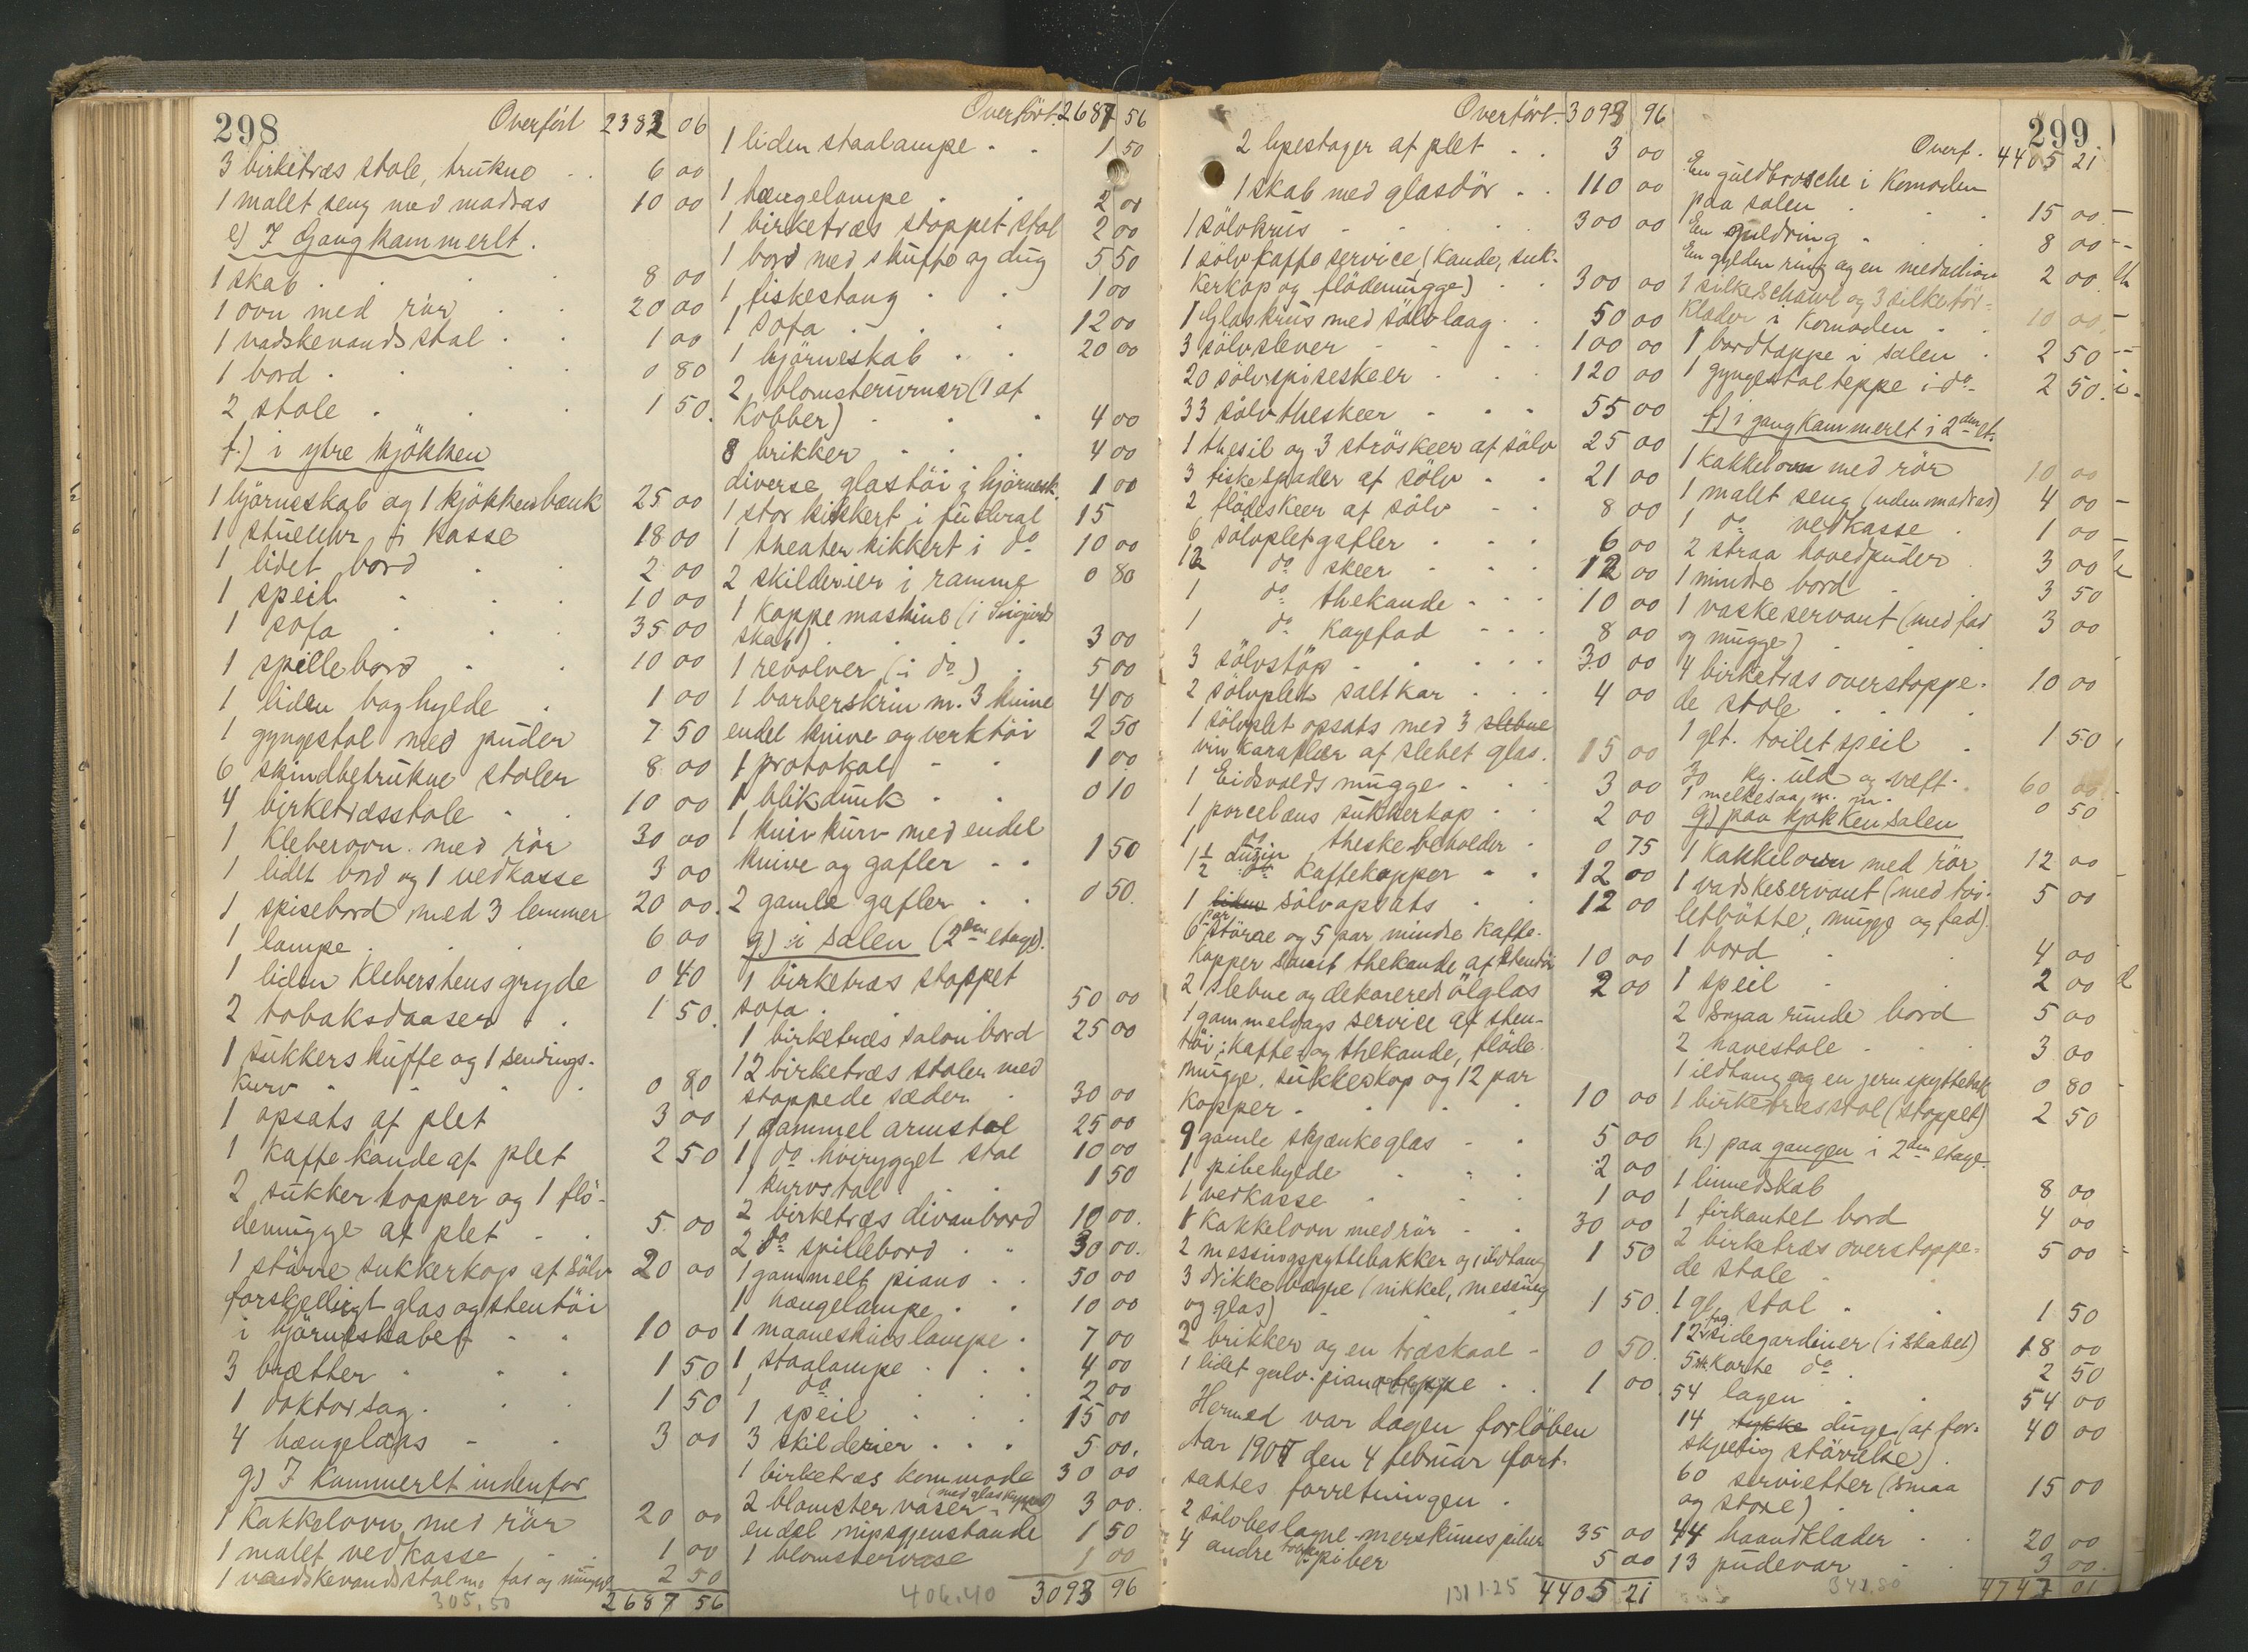 298
Overfört 2382 06
3 birketræs stole, trukne 6 00
1 malet seng med madras 10 00
e) I Gangkammerlt.
1 skab 8 00
1 ovn med rör 20 00
1 vadskevandsstol 1 00
1 bord 0 80
2 stole 1 50
f.) i ytre kjökken
1 hjörneskab og 1 kjökkenbænk 25 00
1 stueuhr i kasse 18 00
1 lidet bord 2 00
1 speil 10 00
1 sofa 35 00
1 spillebord 10 00
1 liden boghylde 1 00
1 gyngestol med puder 7 50
6 skindbetrukne stoler 8 00
4 birketræsstole 10 00
1 Kleberovn med rör 30 00
1 lidet bord og 1 vedkasse 3 00
1 spisebord med 3 lemmer 20 00
1 lampe 6 00
1 liden Kleberstensgryde 0 40
2 tobaksdaaser 1 50
1 sukkerskuffe og 1 sendings-
kurv 0 80
1 opsats af plet 3 00
1 Kaffekande af plet 2 50
2 sukkerkopper og 1 flö-
demugge af plet 5 00
1 större sukkerkop af sölv 20 00
forskjelligt glas og stentöi
i hjörneskabet 10 00
3 brætter 1 50
1 doktorsag 1 50
4 hængelaas 3 00
g) I Kammerlt indenfor
1 Kakkelovn med rör 20 00
1 malet vedkasse 1 00
1 vaskevandsstol m. fad og mugge 2 50
305.50 2687 56
Overfört. 2687 56
1 liden staalampe 1 50
1 hængelampe 2 00
1 birketræs stoppet stol 2 00
1 bord med skuffe og dug 5 50
1 fiskestang 1 00
1 sofa 12 00
1 hjörneskab 20 00
2 blomsterurner (1 af
Kobber) 4 00
8 brikker 4 00
diverse glastöi i hjörnesk. 1 00
1 stor kikkert i futteral 15
1 theaterkikkert i do 10 00
2 skilderier i ramme 0 80
1 koppemaskine (i Sigurds
skab) 3 00
1 revolver (i do) 5 00
1 barberskrin m. 3 knive 4 00
endel knive og verktöi 2 50
1 protokol 1 00
1 blikdunk 0 10
1 knivkurv med endel
knive og gafler 1 50
2 gamle gafler 0 50
g) i salen (2den etage).
1 birketræs stoppet
sofa 50 00
1 birketræs salonbord 25 00
12 birketræs stoler med
stoppede sæder 30 00
1 gammel armstol 25 00
1 do hvirygget stol 10 00
1 kurvstol 1 50
2 birketræs divanbord 10 00
2 do spillebord 30 00
1 gammelt piano 50 00
1 hængelampe 10 00
1 maaneskinslampe 7 00
1 staalampe 4 00
1 do 2 00
1 speil 15 00
3 skilderier 5 00
1 birketræs kommode 30 00
2 blomstervaser (med glaskuppel) 3 00
endel nipsgjenstande 1 50
1 blomstervase 1 00
406.40 3093 96
Overfört. 3093 96
2 lysestager af plet 3 00
1 skab med glasdör 110 00
1 sölvkrus 300 00
1 sölvkaffeservice (Kande, suk-
kerkop og flödemugge) 300 00
1 Glaskrus med sölvlaag 50 00
3 sölvslever 100 00
20 sölvspiseskeer 120 00
33 sölvtheskeer 55 00
1 thesil og 3 ströskeer af sölv 25 00
3 fiskespader af sölv 21 00
2 flödeskeer af sölv 8 00
6 sölvpletgafler 6 00
12 do skeer 12 00
1 do thekande 10 00
1 do Kagefad 8 00
3 sölvstöp 30 00
2 sölvplet saltkar 4 00
1 sölvplet opsats med 3 slebne
vinkarafler af slebet glas 15 00
1 Eidsvolds mugge 3 00
1 porcelæns sukkerkop 2 00
1 do theskebeholder 0 75
1 1/2 dusin Kaffekopper 12 00
1 liden sölvopsats 12 00
6 par större og 5 par mindre Kaffe-
kopper samt thekande af stentöi 10 00
2 slebne og dekorerede ölglas 2 00
1 gammeldags service af sten-
töi; kaffe- og thekande, flöde-
mugge, sukkerkop og 12 par
kopper 10 00
9 gamle skjænkeglas 5 00
1 pibehylde 2 00
1 vedkasse 1 00
1 Kakkelovn med rör 30 00
2 messingspyttebakker og 1 ildtang 1 50
3 drikkebægre (nikkel, messing
og glas) 1 50
2 brikker og en træskaal 0 50
1 lidet gulv-pianoteppe 1 00
Hermed var dagen forlöben
Aar 1907 den 4 februar fort-
sattes forretningen.
2 sölvbeslagne merskumspiber 35 00
4 andre piber 5 00
1311.25 4405 21
299
Overf. 4405 21
En guldbrosche i Komoden
paa salen 15 00
En guldring 8 00
En gylden ring og en medaillon 2 00
1 silkeschawl og 3 silketör-
klæder i Komoden 10 00
1 bordtæppe i salen 2 50
1 gyngestolteppe i do 2 50
f) i gangkammerlt i 2den et.
1 kakkelovn med rör 10 00
1 malet seng (uden madras) 4 00
1 do vedkasse 1 00
2 straa hovedpuder 3 00
1 mindre bord 3 50
1 vaskeservant (med fad 3 00
og mugge)
4 birketræs overstoppe- 10 00
de stole
1 glt. toiletspeil 1 50
30 kg. uld og væft 60 00
1 melkesaa m. m. 0 50
g) paa kjøkkensalen
1 Kakkelovn med rör 12 00
1 vadskeservant (med toi- 5 00
letbötte, mugge og fad)
1 bord 4 00
1 speil 2 00
2 smaa runde bord 5 00
2 havestole 3 00
1 ildtang og en jernspyttebak 0 80
1 birketræsstol (stoppet) 2 50
h) paa gangen i 2den etage
1 linnedskab 8 00
1 firkantet bord 4 00
2 birketræs overstoppe- 5 00
de stole
1 gl. stol 1 50
12 fag sidegardiner (i skabet) 18 00
5 stk korte do 2 50
54 lagen 54 00
14 tykke duge (af for- 40 00
skjellig störrelse)
60 servietter (smaa 15 00
og store)
44 haandklæder 20 00
13 pudevar 3 00
341.80 4747 01